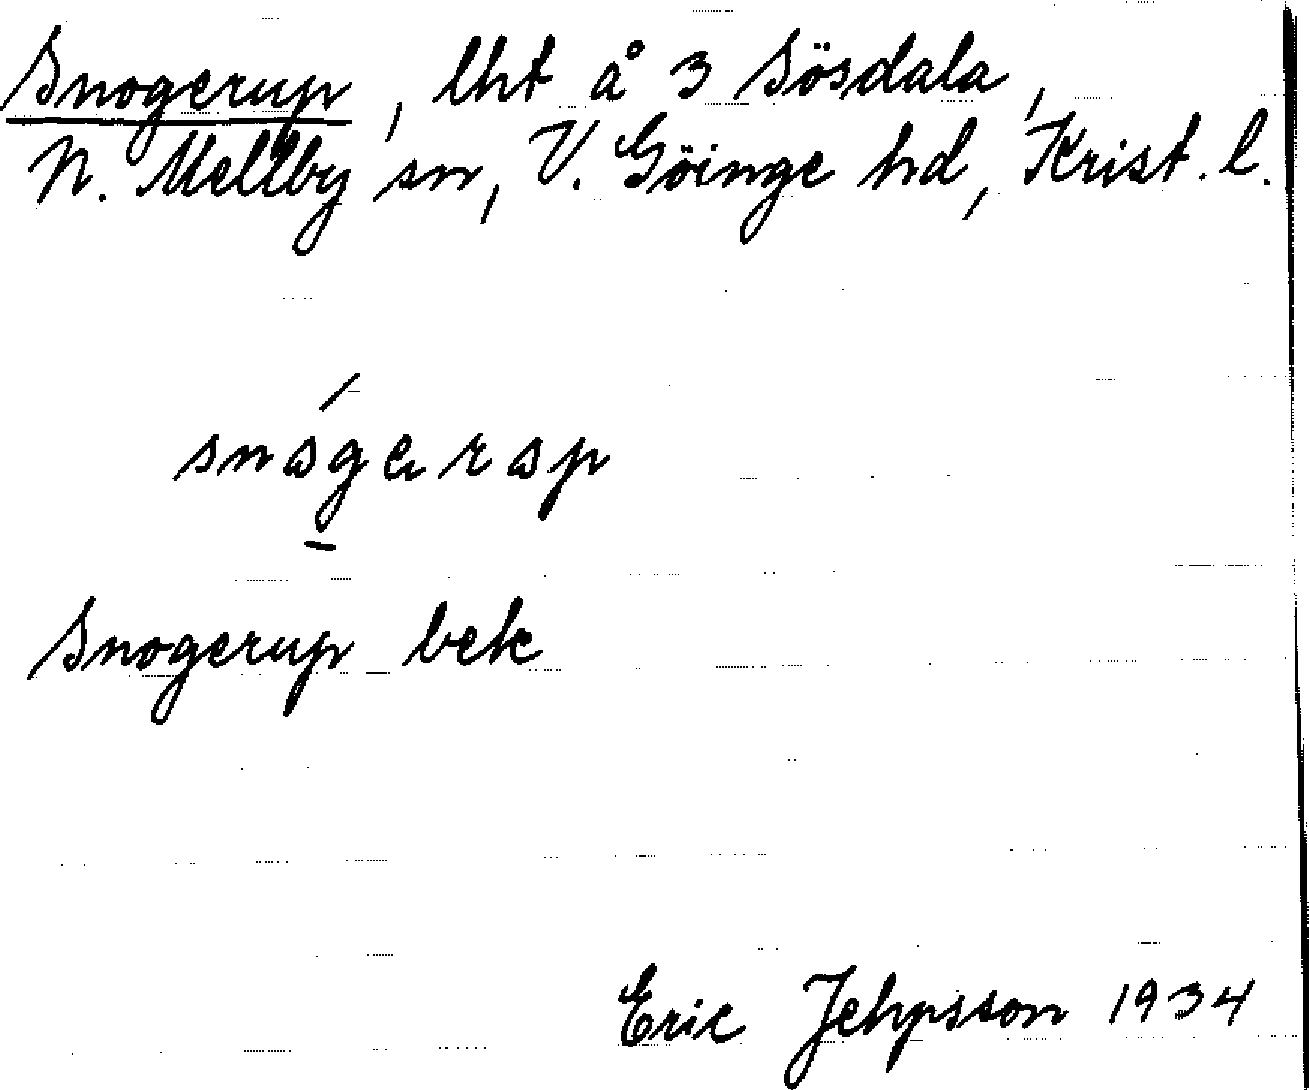 Snogerup, lht å 3 Sösdala,
N. Mellby sn, V. Göinge hd, Krist. l.
Snogerup bek
Eric Jehpsson 1934